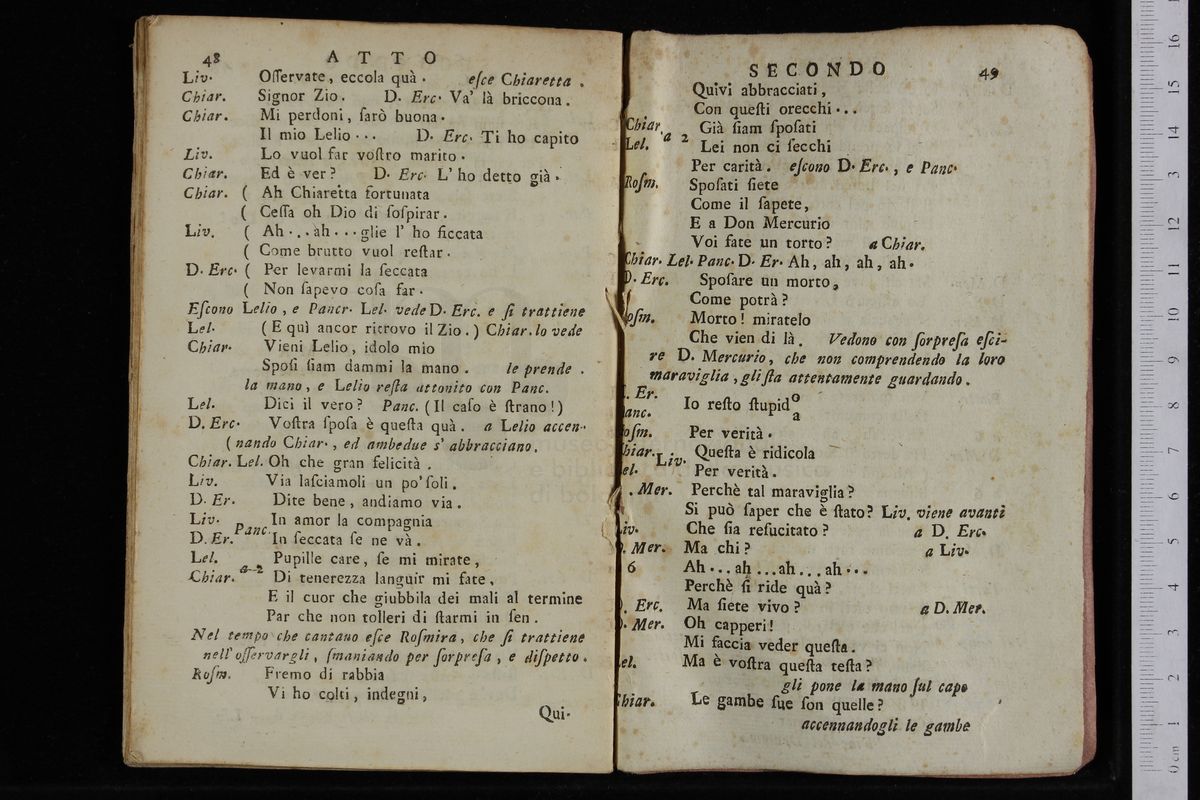 48 ATTO
Liv. Oſſervate, eccola quà. eſce Chiaretta.
Chiar. Signor Zio. D. Erc. Va' là briccona.
Chiar. Mi perdoni, ſarò buona.
Il mio Lelio... D. Erc. Ti ho capito
Liv. Lo vuol far voſtro marito.
Chiar. Ed è ver? D. Erc. L'ho detto già.
Chiar. ( Ah Chiaretta fortunata
( Ceſſa oh Dio di ſoſpirar.
Liv. ( Ah...ah...glie l'ho ficcata
( Come brutto vuol reſtar.
D. Erc. ( Per levarmi la ſeccata
( Non ſapevo coſa far.
Eſcono Lelio, e Pancr. Lel. vede D. Erc. e ſi trattiene
Lel. (E quì ancor ritrovo il Zio.) Chiar. lo vede
Chiar. Vieni Lelio, idolo mio
Spoſi ſiam dammi la mano. le prende.
la mano, e Lelio reſta attonito con Panc.
Lel. Dici il vero? Panc. (Il caſo è ſtrano!)
D. Erc. Voſtra ſpoſa è queſta quà. a Lelio accen-
(nando Chiar., ed ambedue s'abbracciano.
Chiar. Lel. Oh che gran felicità.
Liv. Via laſciamoli un po' ſoli.
D. Er. Dite bene, andiamo via.
Liv. Panc In amor la compagnia
D. Er. In ſeccata ſe ne và.
Lel. a 2 Pupille care, ſe mi mirate,
Chiar. Di tenerezza languir mi fate,
E il cuor che giubbila dei mali al termine
Par che non tolleri di ſtarmi in ſen.
Nel tempo che cantano eſce Roſmira, che ſi trattiene
nell'oſſervargli, ſmaniando per ſorpreſa, e diſpetto.
Roſm. Fremo di rabbia
Vi ho colti, indegni,
Qui-
SECONDO 49
Quivi abbracciati,
Con queſti orecchi...
Chiar. Già ſiam ſpoſati
Lel. a 2 Lei non ci ſecchi
Per carità. eſcono D. Erc., e Panc.
Roſm. Spoſati ſiete
Come il ſapete,
E a Don Mercurio
Voi fate un torto? a Chiar.
Chiar. Lel. Panc. D. Er. Ah, ah, ah, ah.
D. Erc. Spoſare un morto,
Come potrà?
oſm. Morto! miratelo
Che vien di là. Vedono con ſorpreſa eſci-
re D. Mercurio, che non comprendendo la loro
maraviglia, gli ſta attentamente guardando.
. Er.
anc. Io reſto ſtupid o a
oſm. Per verità.
hiar. Liv. Queſta è ridicola
el. Per verità.
. Mer. Perchè tal maraviglia?
Si può ſaper che è ſtato? Liv. viene avanti
iv. Che ſia reſucitato? a D. Erc.
. Mer. Ma chi? a Liv.
6 Ah...ah...ah...ah...
Perchè ſi ride quà?
. Erc. Ma ſiete vivo? a D. Mer.
. Mer. Oh capperi!
Mi faccia veder queſta.
el. Ma è voſtra queſta teſta?
gli pone la mano ſul capo
hiar. Le gambe ſue ſon quelle?
accennandogli le gambe